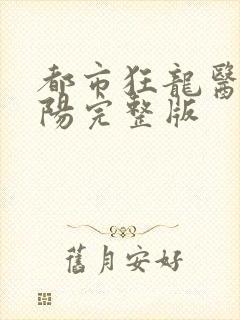 都市狂龍醫
陽完整版
舊月安好